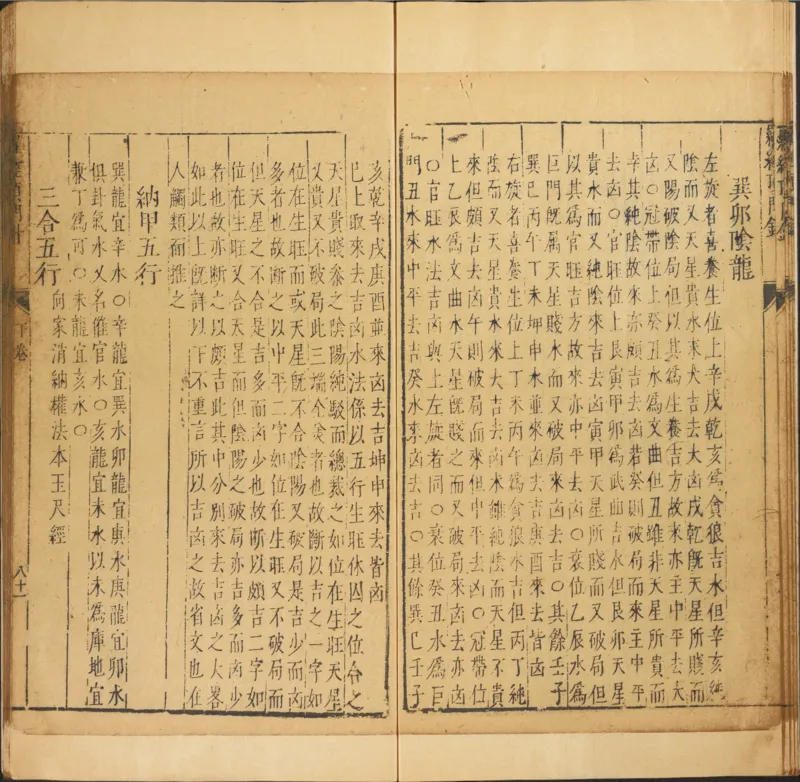 巽卯陰龍
左旋者喜養生位上辛戌乾亥為貪狼吉水但辛亥純
陰而又天星貴水來大吉去大凶戌乾旣天星所賤而
又陽破陰局但以其為生養吉方故來亦主中平去大
凶○冠帶位上癸丑水為文曲但丑雖非天星所貴而
辛其純陰故來亦頗吉去凶若癸則破局而來主中平
去凶○官旺位上艮寅甲卯為武曲吉水但艮卯天星
貴水而又純陰來吉去凶寅甲天星所賤而又破局但
以其為官旺吉方故來亦中平去凶○衰位乙辰水為
巨門旣属天星賤水而又破局來凶去吉○其餘壬子
巽巳丙午丁未坤申水並來凶去吉庚酉來去皆凶
右旋者喜養生位上丁未丙午為貪狼水吉但丙丁純
陰而又天星貴水來大吉去凶未雖純陰而天星不貴
來但頗吉去凶午則破局而來但中平去凶○冠帶位
上乙辰為文曲水天星旣賤之而又破局來凶去亦凶
○官旺水法吉凶與上左旋者同○衰位癸丑水為巨
門丑水來中平去吉癸水來凶去吉○其餘巽巳壬子
亥乾辛戌庚酉並來凶去吉坤申來去皆凶
已上取來去吉凶水法係以五行生旺休囚之位合之
天星貴賤叅之陰陽純駁而總裁之如位在生旺天星
又貴又不破局此三端全美者也故斷以吉之一字如
位在生旺而或天星旣不合陰陽又破局是吉少而凶
多者也故斷之以中平二字如位在生旺又不破局而
但天星之不合是吉多而凶少也故斷以頗吉二字如
位在生旺又合天星而但陰陽之破局亦吉多而凶少
者也故亦斷之以頗吉此其中分別來去吉凶之大畧
如此以上旣詳以下不重言所以吉凶之故省文也在
人觸類而推之
納甲五行
巽龍宜辛水○辛龍宜巽水卯龍宜庚水庚龍宜卯水
俱卦氣水又名催官水○亥龍宜未水以未為庫地宜
兼丁為可○未龍宜亥水○
三合五行 向家消納權法本玉尺經
下卷
八十一